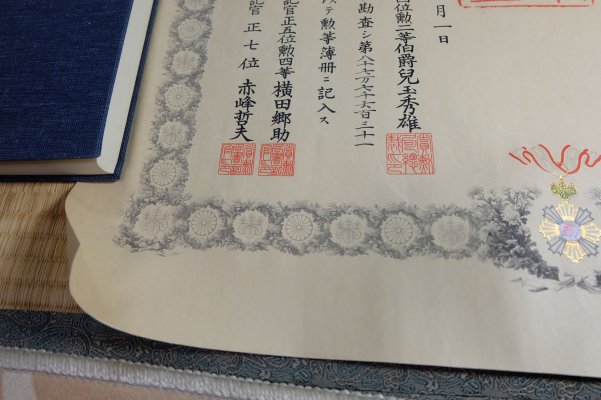 月一日
位勲二等伯爵兒玉秀雄
勘査シ第八十七万七千六百二十一
テ勲等簿冊ニ記入ス
記官正五位勲四等横田郷助
記官正七位赤峰哲夫